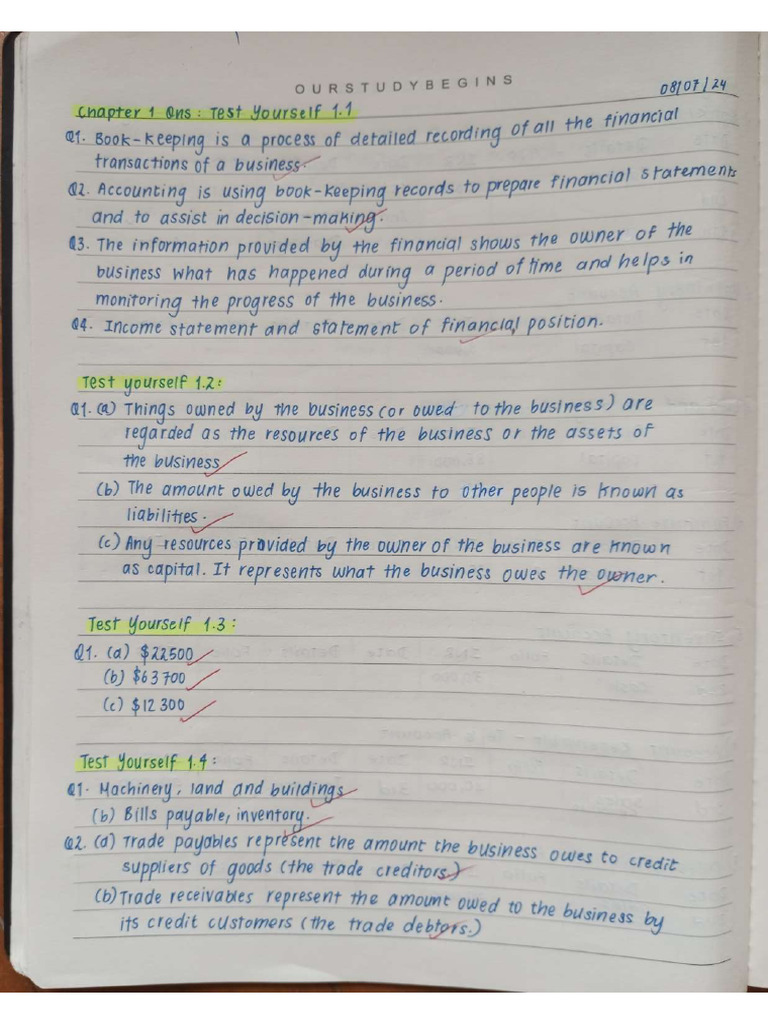 OURSTUDYBEGINS
08/07/24
Chapter 1 Qns: Test Yourself 1.1
Q1. Book-keeping is a process of detailed recording of all the financial
transactions of a business.
Q2. Accounting is using book-keeping records to prepare financial statements
and to assist in decision-making.
Q3. The information provided by the financial shows the owner of the
business what has happened during a period of time and helps in
monitoring the progress of the business.
Q4. Income statement and statement of financial position.
Test yourself 1.2:
Q1. (a) Things owned by the business (or owed to the business) are
regarded as the resources of the business or the assets of
the business
(b) The amount owed by the business to other people is known as
liabilities.
(c) Any resources provided by the owner of the business are known
as capital. It represents what the business owes the owner.
Test Yourself 1.3:
Q1. (a) $22500
(b) $63700
(c) $12 300
Test Yourself 1.4:
Q1. Machinery, land and buildings
(b) Bills payable, inventory.
Q2. (a) Trade payables represent the amount the business owes to credit
suppliers of goods (the trade creditors)
(b) Trade receivables represent the amount owed to the business by
its credit customers (the trade debtors.)